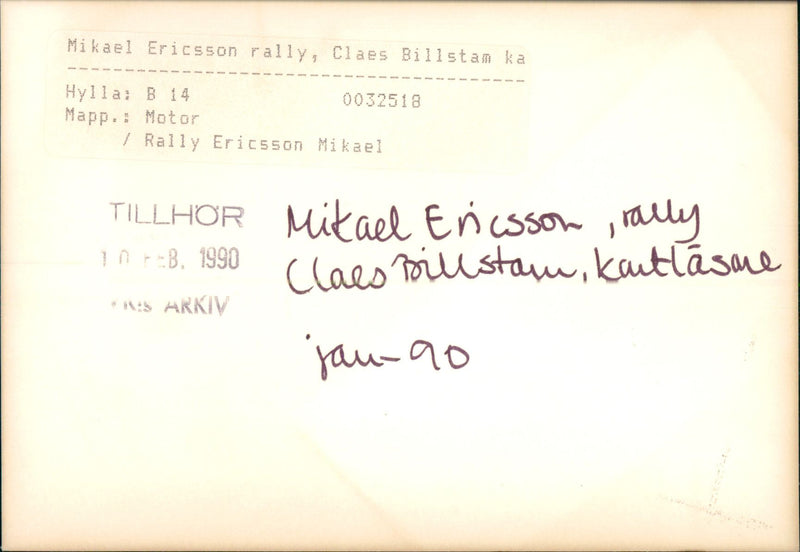 Mikael Ericsson rally, Claes Billstam ka
Hylla: B 14 0032518
Mapp.: Motor
/ Rally Ericsson Mikael
TILLHÖR
10 FEB. 1990
ARKIV
Mikael Ericsson, rally
Claes Billstam, kartläsare
jan-90